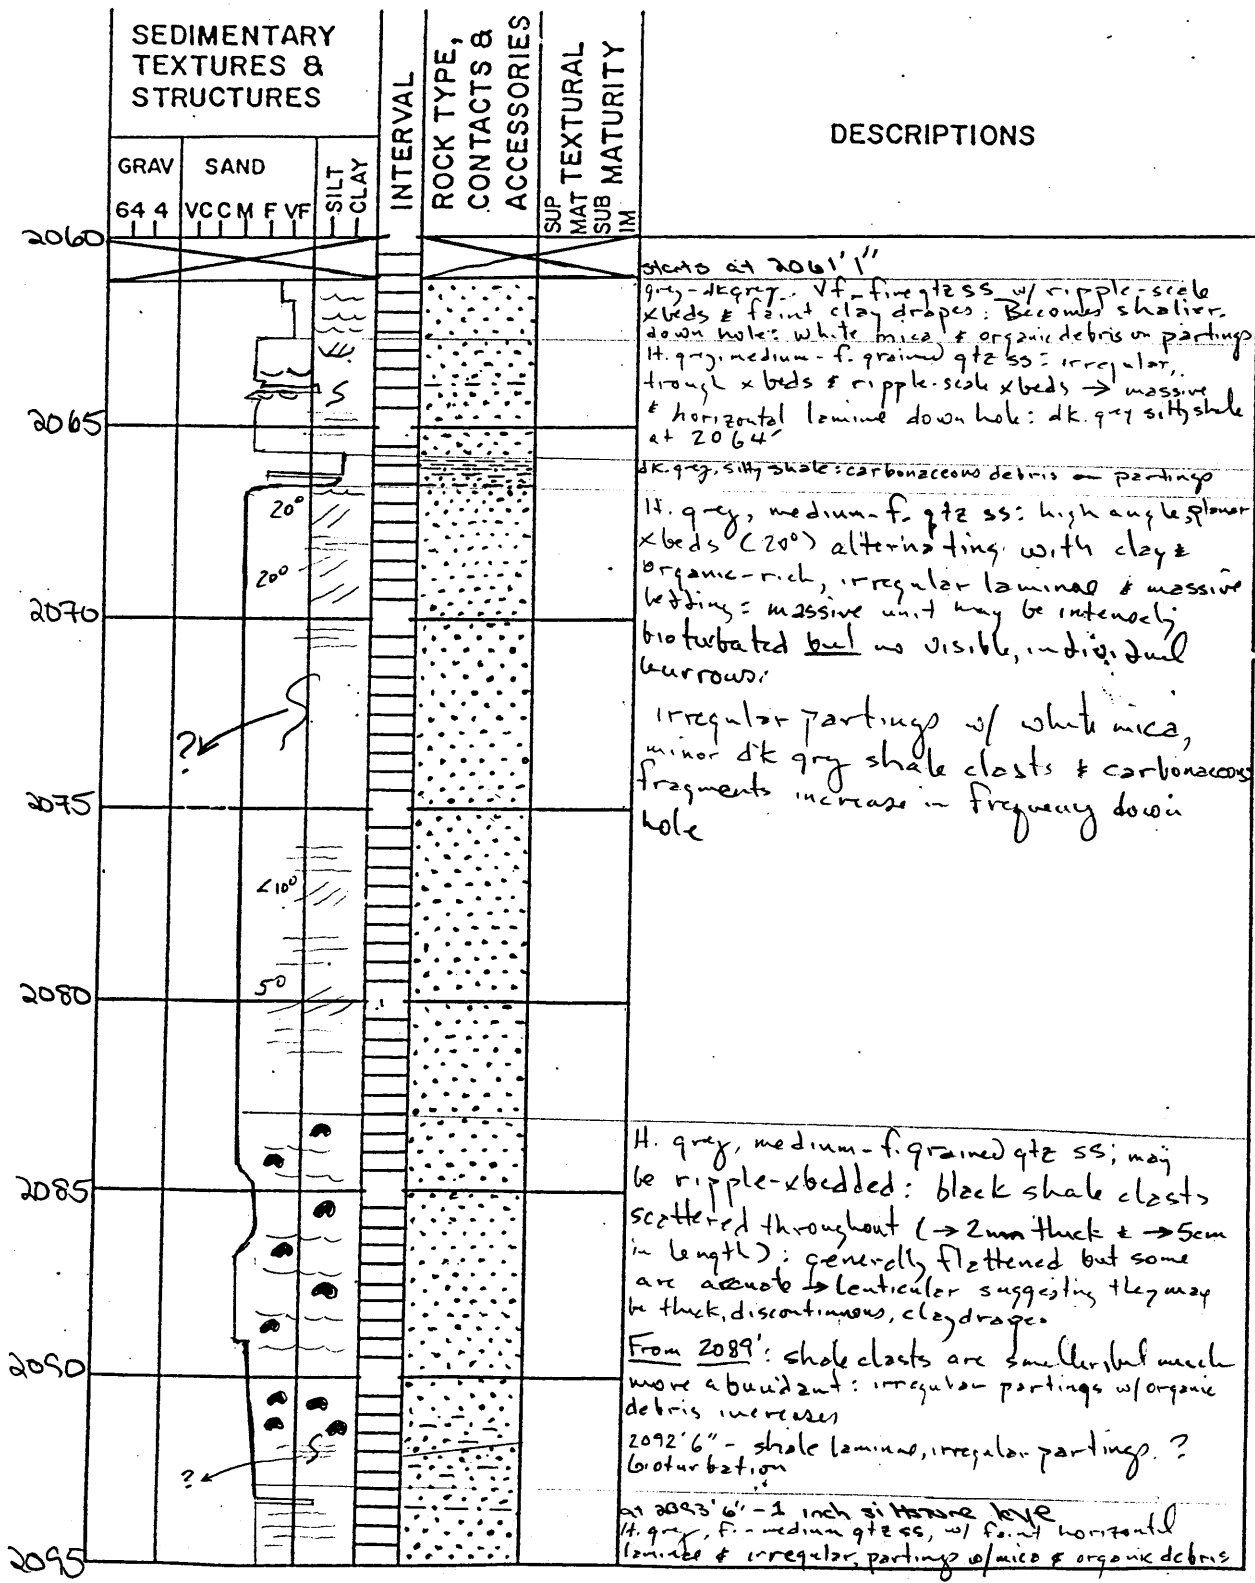 SEDIMENTARY
TEXTURES &
STRUCTURES
GRAV SAND SILT CLAY
64 4 VC C M F VF
INTERVAL
ROCK TYPE,
CONTACTS &
ACCESSORIES
TEXTURAL
MATURITY
SUP
MAT
SUB
IM
DESCRIPTIONS
2060
starts at 2061'1"
grey-dkgrey. Vf-fine qtz ss w/ ripple-scale
xbeds & faint clay drapes: Becomes shalier
down hole: white mica & organic debris on partings
lt. grey, medium-f. grained qtz ss: irregular,
trough xbeds & ripple-scale xbeds → massive
& horizontal laminae down hole: dk. grey silty shale
at 2064'
2065
dk. grey, silty shale: carbonaceous debris on partings
20°
lt. grey, medium-f. qtz ss: high angle, planar
xbeds (20°) alternating with clay &
20°
organic-rich, irregular laminae & massive
bedding: massive unit may be intensely
2070
bioturbated but no visible, individual
burrows:
irregular partings w/ white mica,
?
minor dk gry shale clasts & carbonaceous
fragments increase in frequency down
hole
2075
<10°
5°
2080
lt. grey, medium-f. grained qtz ss; may
be ripple-xbedded: black shale clasts
2085
scattered throughout (→ 2mm thick & → 5cm
in length): generally flattened but some
are arcuate → lenticular suggesting they may
be thick, discontinuous, clay drapes
From 2089': shale clasts are smaller, but much
2090
more abundant: irregular partings w/organic
debris increases
2092'6" - shale laminae, irregular partings. ?
bioturbation
?
at 2093'6" - 1 inch siltstone
lt. grey, f.-medium qtz ss, w/ faint horizontal
laminae & irregular, partings w/mica & organic debris
2095